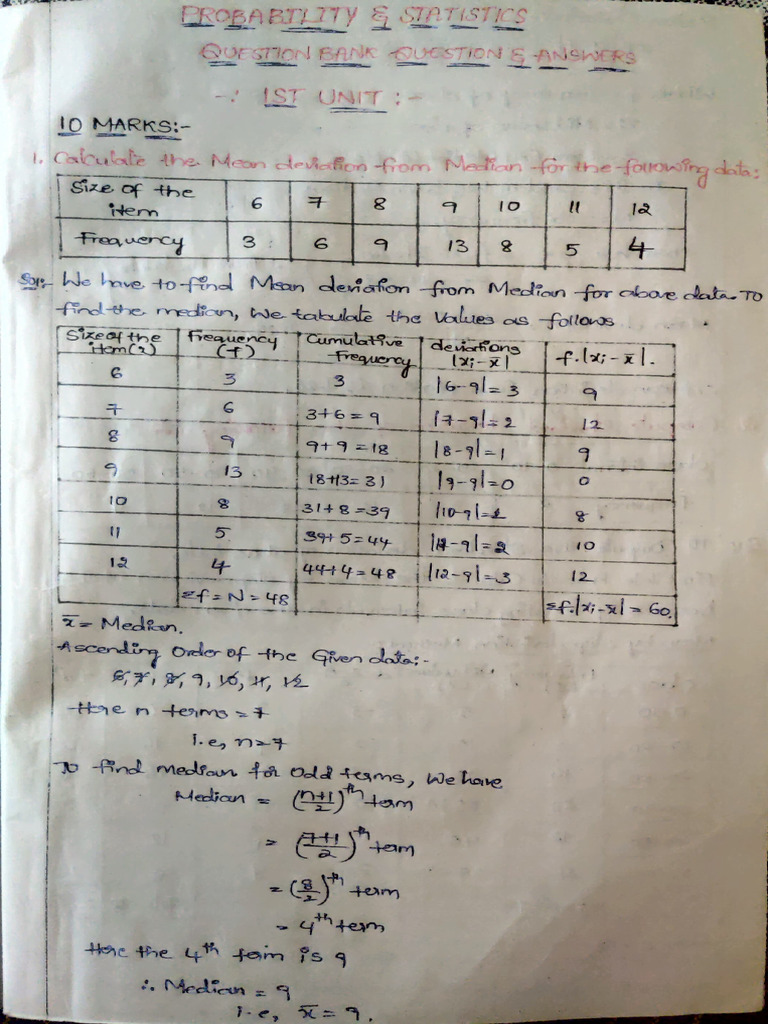 PROBABILITY & STATISTICS
QUESTION BANK QUESTION & ANSWERS
-: 1ST UNIT :-
10 MARKS:-
1. Calculate the Mean deviation from Median for the following data:
Size of the item 6 7 8 9 10 11 12
Frequency 3 6 9 13 8 5 4
Sol:- We have to find Mean deviation from Median for above data. To
find the median, We tabulate the Values as follows.
Size of the item(x) Frequency (f) Cumulative Frequency deviations |xi-x̄| f.|xi-x̄|.
6 3 3 |6-9|=3 9
7 6 3+6=9 |7-9|=2 12
8 9 9+9=18 |8-9|=1 9
9 13 18+13=31 |9-9|=0 0
10 8 31+8=39 |10-9|=1 8
11 5 39+5=44 |11-9|=2 10
12 4 44+4=48 |12-9|=3 12
Σf=N=48 Σf.|xi-x̄|=60.
x̄ = Median.
Ascending Order of the Given data:-
6, 7, 8, 9, 10, 11, 12
Here n terms = 7
i.e, n=7
To find median for odd terms, We have
Median = (n+1/2)th term
= (7+1/2)th term
= (8/2)th term
= 4th term
Here the 4th term is 9
∴ Median = 9
i.e, x̄ = 9.